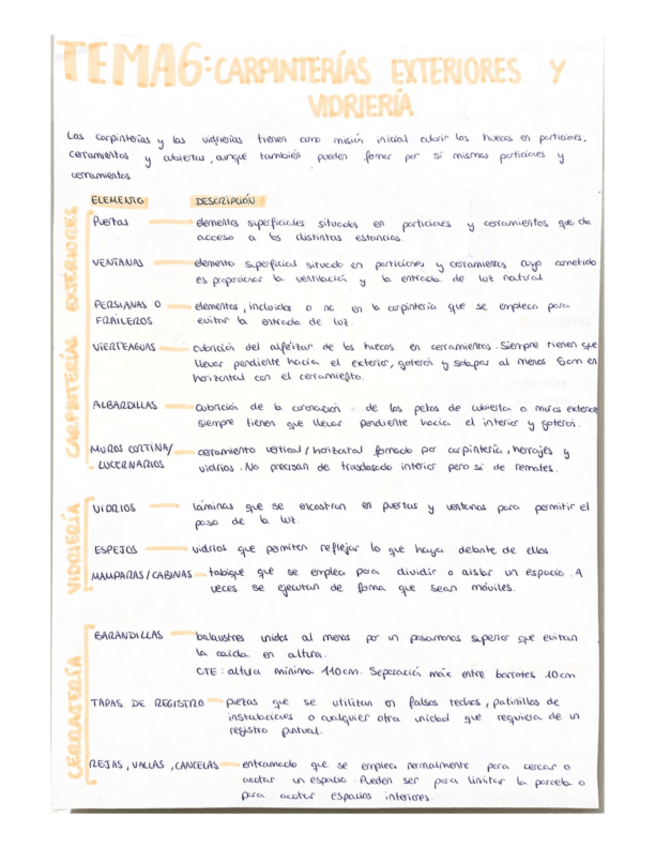 TEMA6: CARPINTERÍAS EXTERIORES Y
VIDRIERÍA
Las carpinterías y las vidrierías tienen como misión inicial cubrir los huecos en particiones,
cerramientos y cubiertas, aunque también pueden formar por sí mismas particiones y
cerramientos.
ELEMENTO DESCRIPCIÓN
CARPINTERÍAS EXTERIORES
Puertas elementos superficiales situados en particiones y cerramientos que da
acceso a las distintas estancias.
VENTANAS elemento superficial situado en particiones y cerramientos cuyo cometido
es proporcionar la ventilación y la entrada de luz natural.
PERSIANAS O FRAILEROS elementos, incluidos o no en la carpintería que se emplean para
evitar la entrada de luz.
VIERTEAGUAS cubrición del alféizar de los huecos en cerramientos. Siempre tienen que
llevar pendiente hacia el exterior, goterón y solapar al menos 5cm en
horizontal con el cerramiento.
ALBARDILLAS cubrición de la coronación de los petos de cubierta o muros exteriores
siempre tienen que llevar pendiente hacia el interior y goterón.
MUROS CORTINA/ LUCERNARIOS cerramiento vertical/horizontal formado por carpintería, herrajes y
vidrios. No precisan de trasdosado interior pero sí de remates.
VIDRIERÍA
VIDRIOS láminas que se encastran en puertas y ventanas para permitir el
paso de la luz.
ESPEJOS vidrios que permiten reflejar lo que haya delante de ellos.
MAMPARAS/CABINAS tabique que se emplea para dividir o aislar un espacio. A
veces se ejecutan de forma que sean móviles.
CERRAJERÍA
BARANDILLAS balaustres unidos al menos por un pasamanos superior que evitan
la caída en altura.
CTE: altura mínima 110cm. Separación máx entre barrotes 10cm
TAPAS DE REGISTRO piezas que se utilizan en falsos techos, patinillos de
instalaciones o cualquier otra unidad que requiera de un
registro puntual.
REJAS, VALLAS, CANCELAS entramado que se emplea normalmente para cercar o
acotar un espacio. Pueden ser para limitar la parcela o
para acotar espacios interiores.